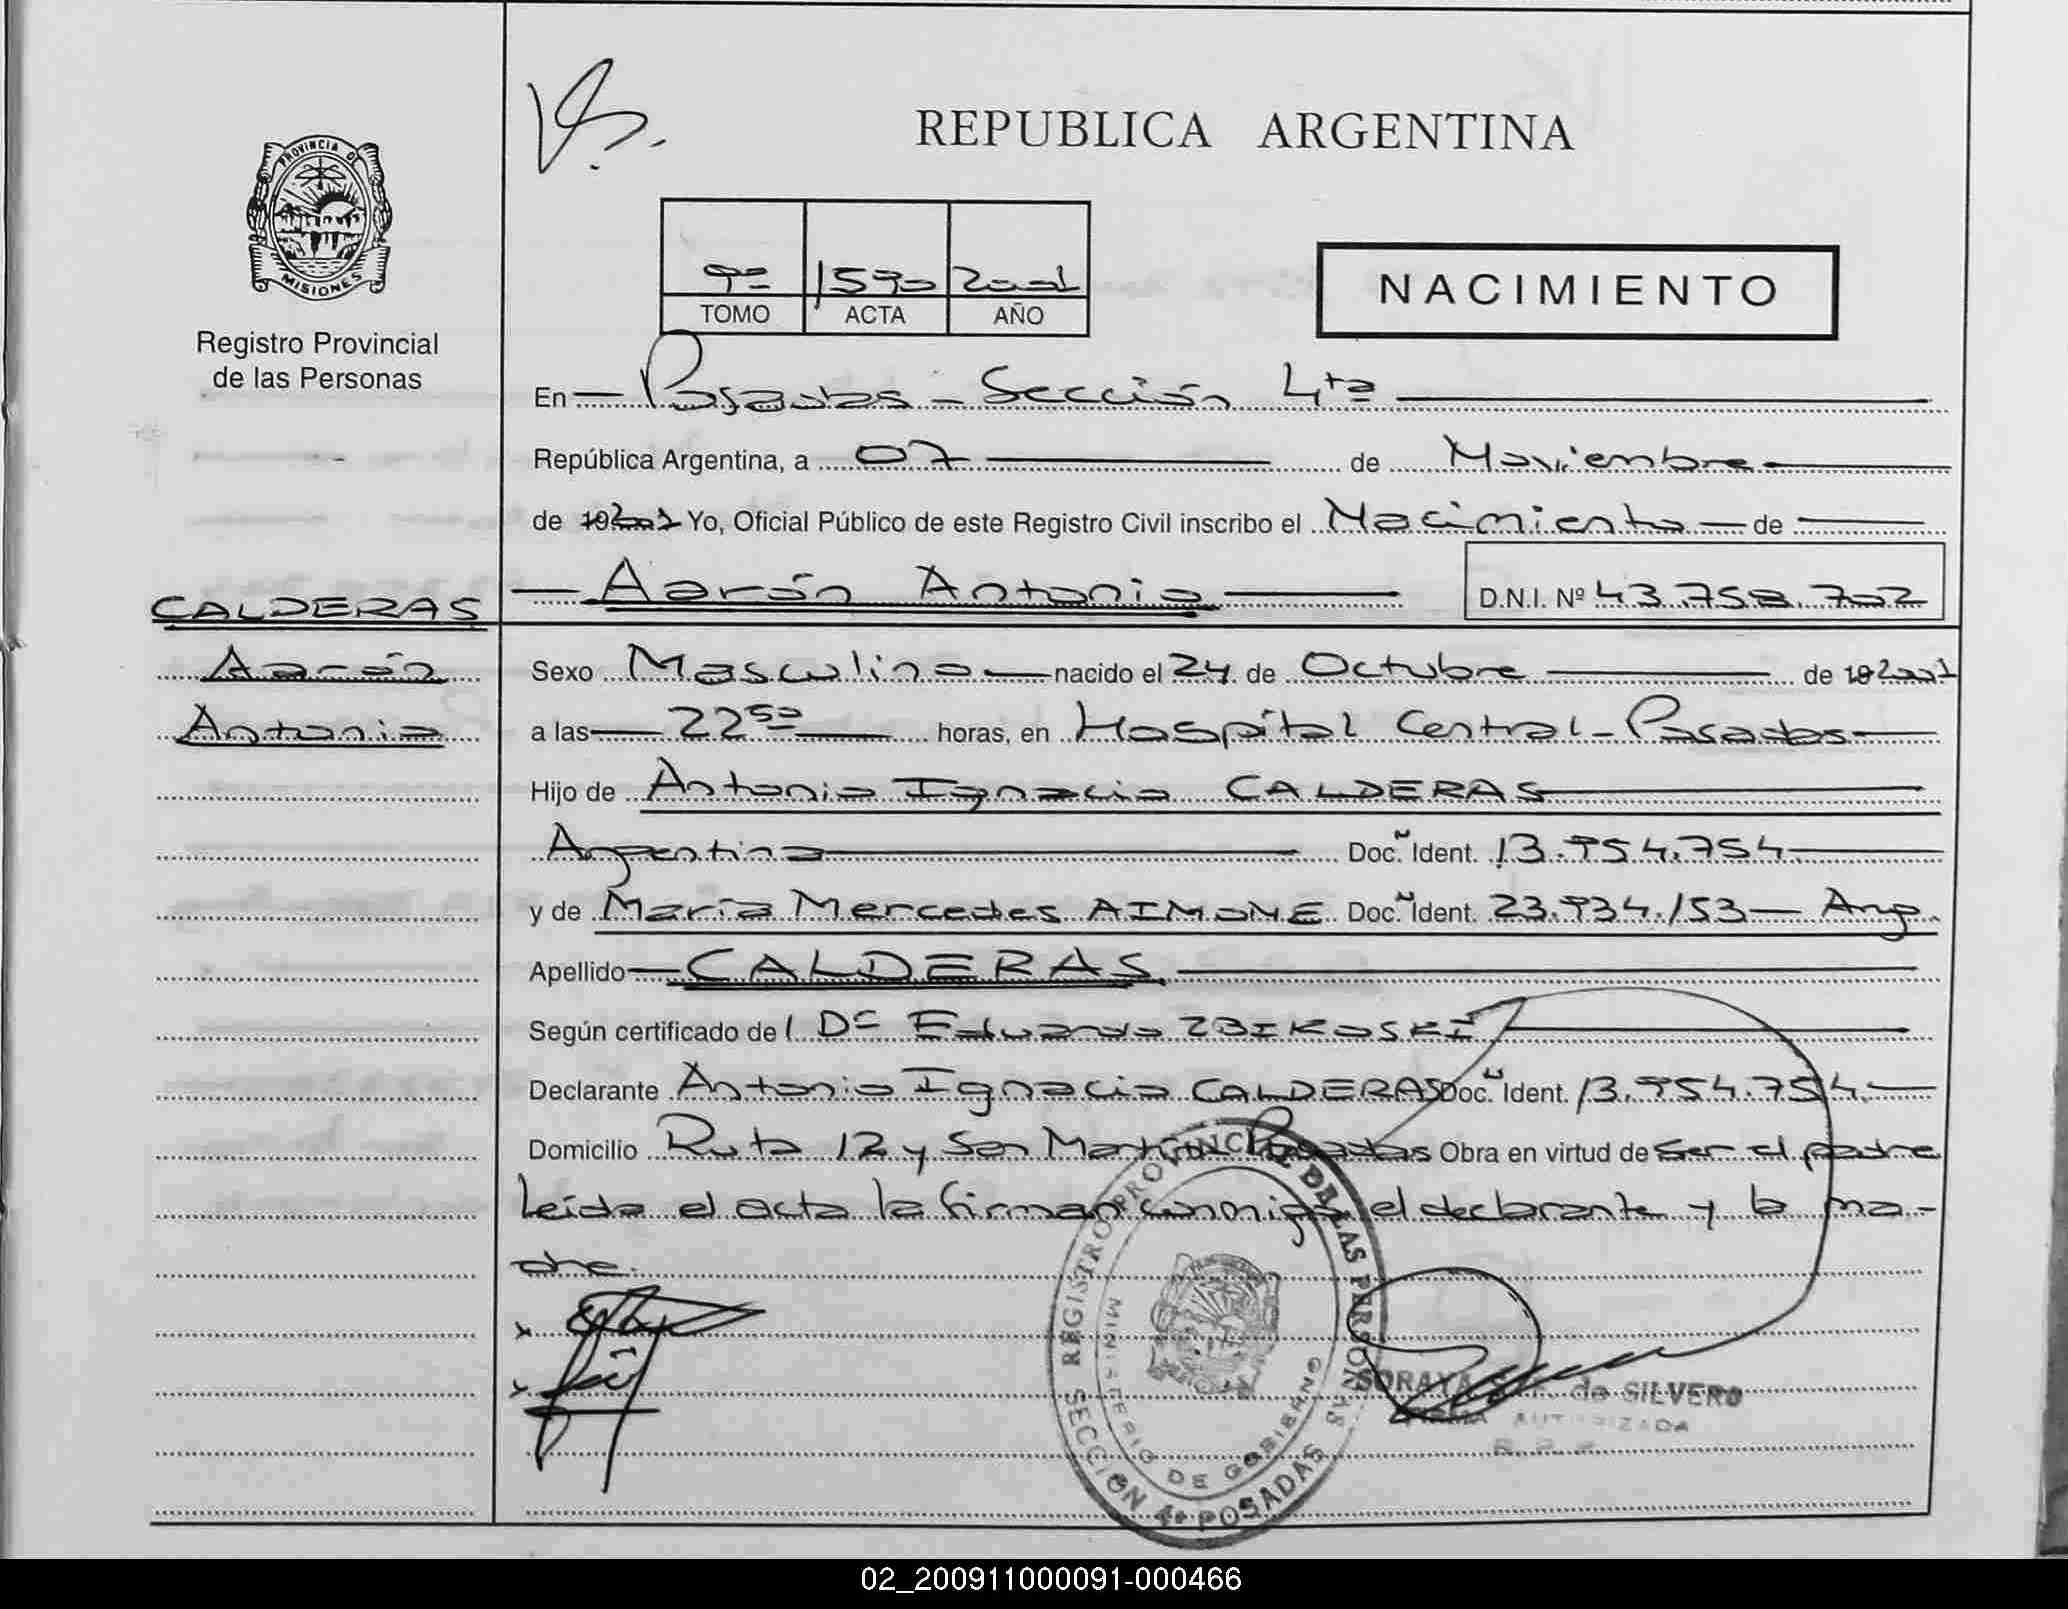 REPUBLICA ARGENTINA
PROVINCIA DE
MISIONES
Registro Provincial
de las Personas
9º 1590 2001
TOMO ACTA AÑO
NACIMIENTO
En Posadas - Sección 4ta
República Argentina, a 07 de Noviembre
de 19 2001 Yo, Oficial Público de este Registro Civil inscribo el Nacimiento de
Aarón Antonio D.N.I. Nº 43.758.702
CALDERAS
Aarón
Antonio
Sexo Masculino nacido el 24 de Octubre de 19 2001
a las 22⁵⁰ horas, en Hospital Central - Posadas
Hijo de Antonio Ignacio CALDERAS
Argentina Doc. Ident. 13.954.754
y de María Mercedes AIMONE Doc. Ident. 23.934.153 - Arg.
Apellido CALDERAS
Según certificado de l Dr Eduardo ZBIKOSKI
Declarante Antonio Ignacio CALDERAS Doc. Ident. 13.954.754.
Domicilio Ruta 12 y San Martín Posadas Obra en virtud de ser el padre
Leída el acta la firman conmigo el declarante y la ma-
dre.
REGISTRO PROVINCIAL DE LAS PERSONAS
MINISTERIO DE GOBIERNO
SECCION 4ª POSADAS
SORAYA de SILVERO
FIRMA AUTORIZADA
02_200911000091-000466